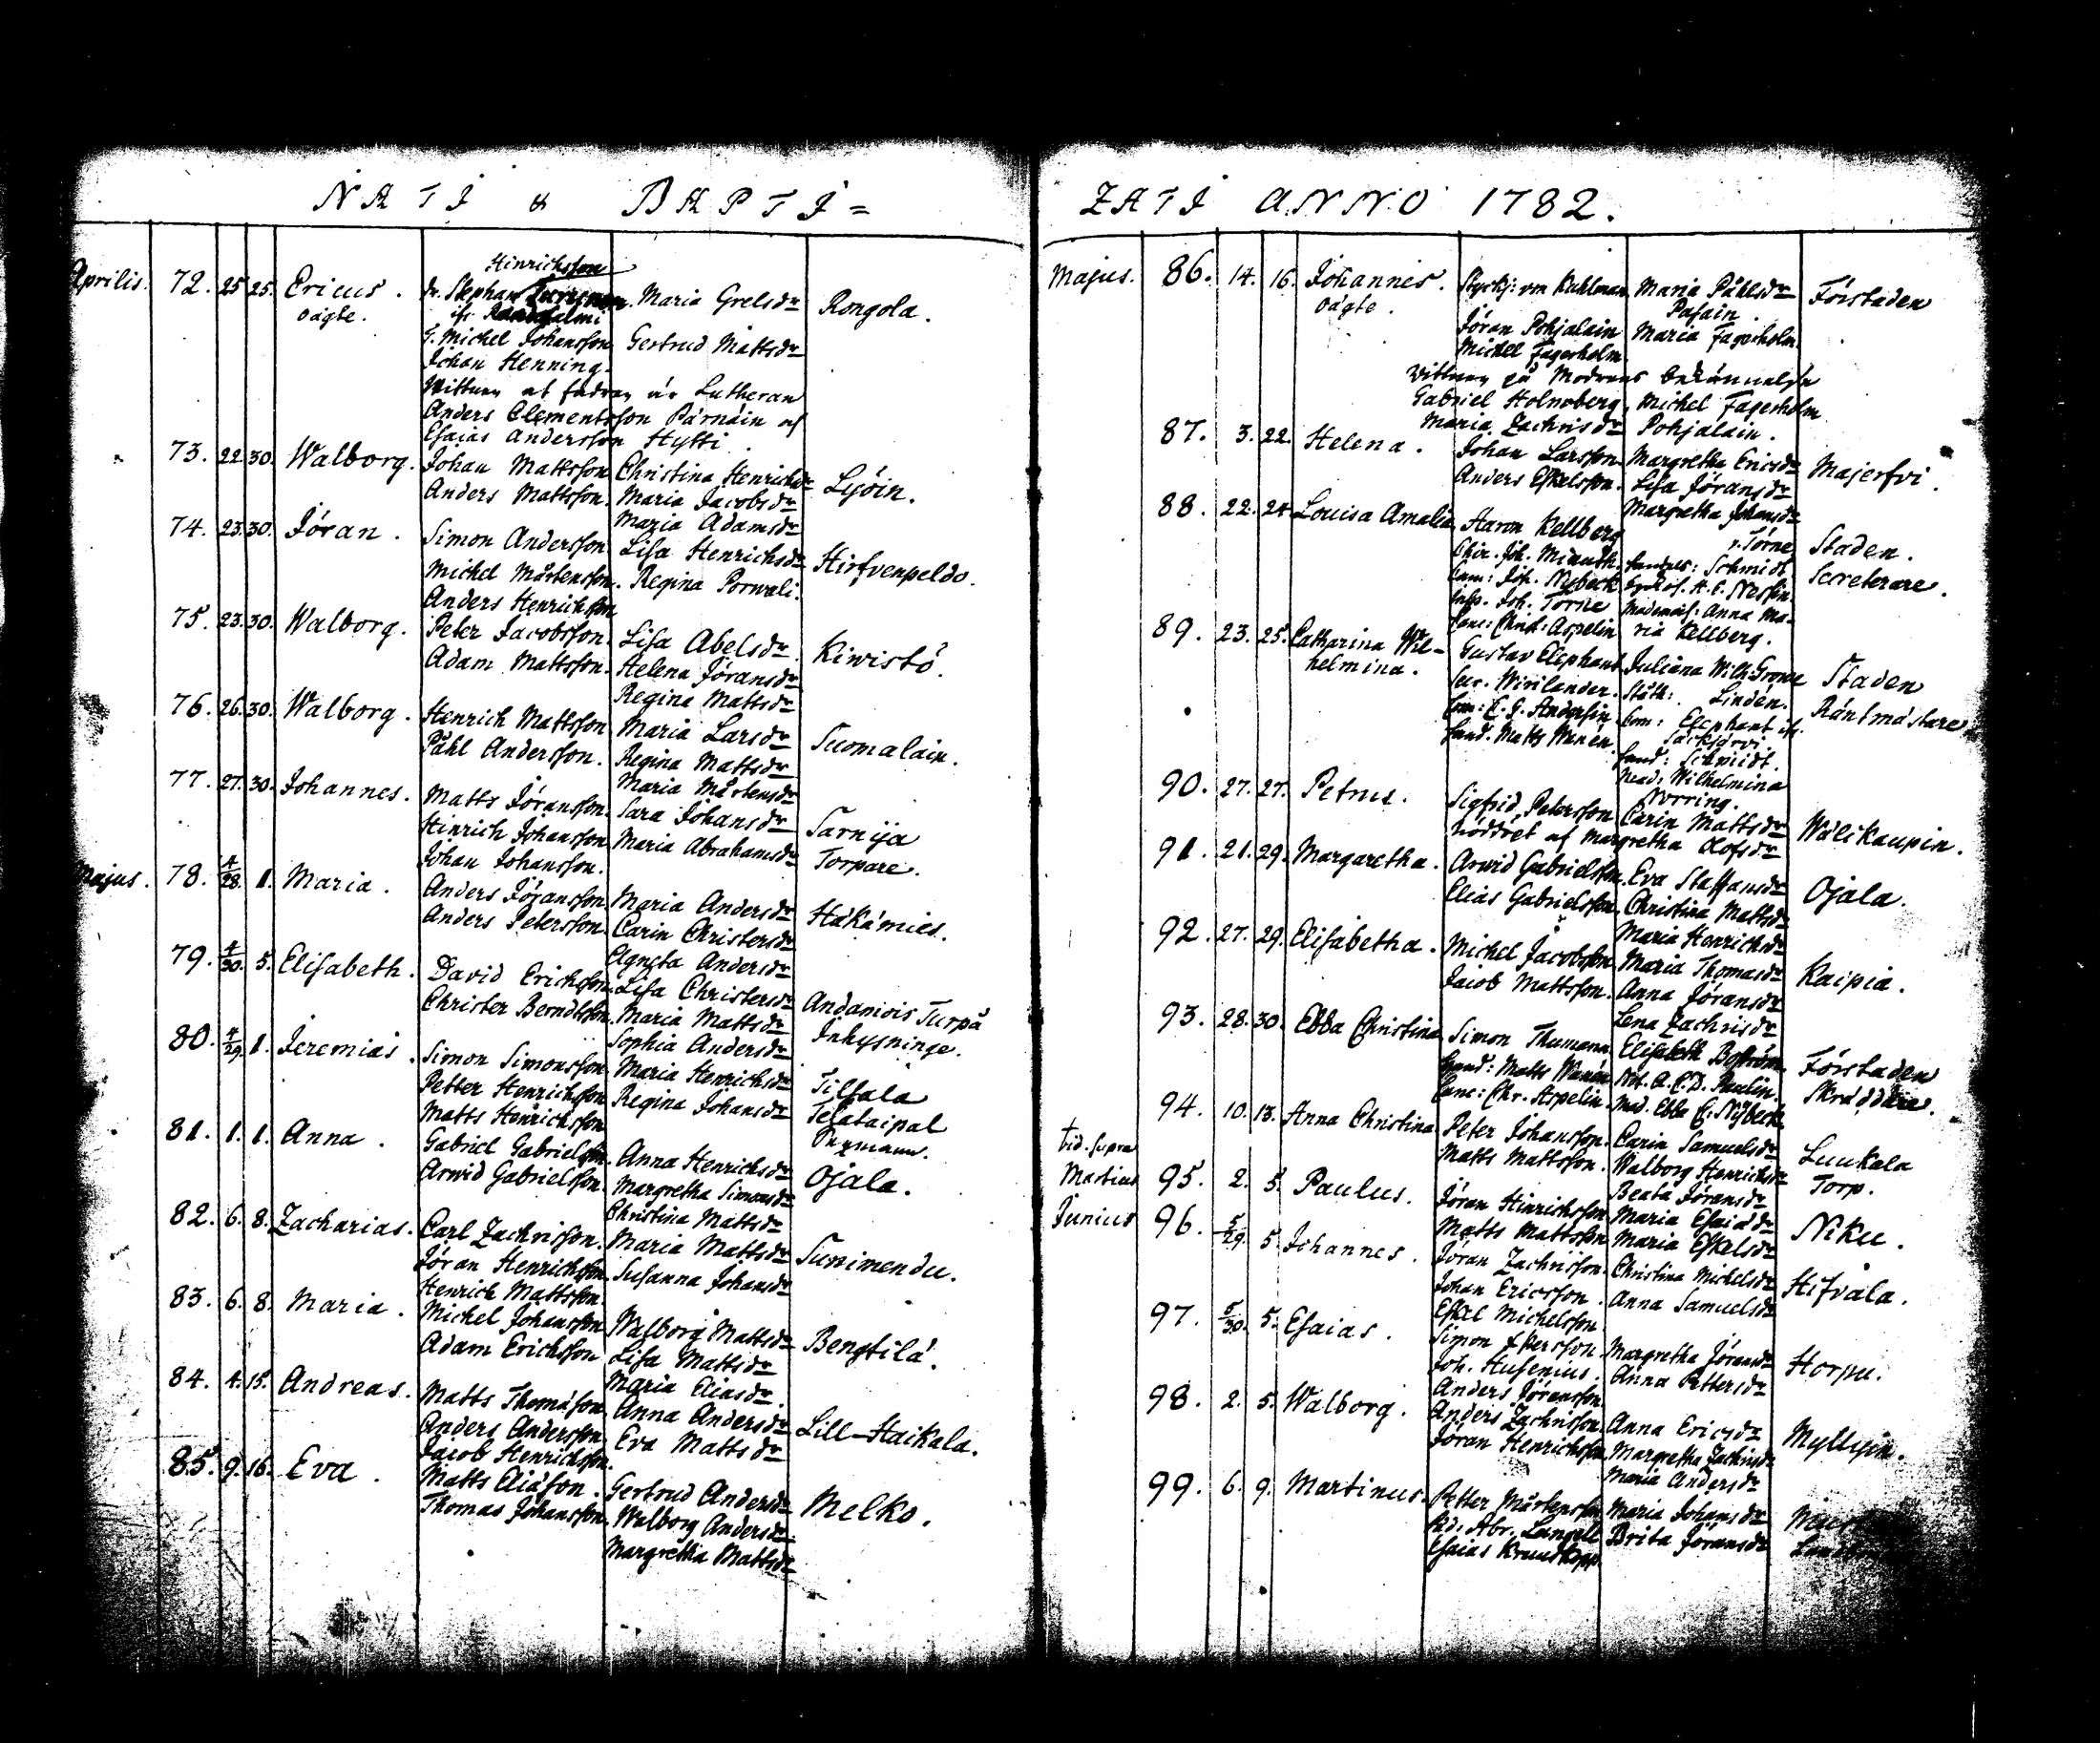 NATI & BAPTI=
Aprilis. 72. 25 25. Ericus. Hinrichsson
oägte. Dr. Stephan Maria Grelsdr Rongola.
G. Michel Johansson Gertrud Mattsdr
Johan Henning.
Wittnen at fadren är Lutheran
Anders Clementsson Pärnäin af
Esaias Andersson Hytti.
73. 22. 30. Walborg. Johan Mattsson Christina Henrichsdr Lyöin.
Anders Mattsson. Maria Jacobsdr
Maria Adamsdr
74. 23. 30. Jöran. Simon Andersson Lisa Henrichsdr Hirfvenpeldo.
Michel Mårtensson. Regina Porwali.
Anders Henrichsson
75. 23. 30. Walborg. Peter Jacobsson. Lisa Abelsdr Kiwistö.
Adam Mattsson. Helena Jöransdr
Regina Mattsdr
76. 26. 30. Walborg. Henrich Mattsson Maria Larsdr Suomalain.
Påhl Andersson. Regina Mattsdr
Maria Mårtensdr
77. 27. 30. Johannes. Matts Jöransson. Sara Johansdr Sarnija
Hinrich Johansson Maria Abrahamsdr Torpare.
Johan Johansson.
Majus. 78. 4/28. 1. Maria. Anders Jöransson Maria Andersdr Häkämies.
Anders Petersson. Carin Christersdr
Agneta Andersdr
79. 4/30. 5. Elisabeth. David Erichsson. Lisa Christersdr Andamois Turpå
Christer Berndtsson. Maria Mattsdr Inhysninge.
Sophia Andersdr
80. 4/29. 1. Jeremias. Simon Simonsson Maria Henrichsdr Tilsala
Petter Henrichsson Regina Johansdr Telataipal
Matts Henrichsson
81. 1. 1. Anna. Gabriel Gabrielsson. Anna Henrichsdr Ojala.
Arwid Gabrielsson. Margretha Simonsdr
Christina Mattsdr
82. 6. 8. Zacharias. Carl Zachrisson. Maria Mattsdr Sunimendu.
Jöran Henrichsson Susanna Johansdr
Henrich Mattsson.
83. 6. 8. Maria. Michel Johansson Walborg Mattsdr Bengtilä.
Adam Erichsson Lisa Mattsdr
Maria Eliasdr.
84. 4. 15. Andreas. Matts Thomasson. Anna Andersdr Lill-Haikala.
Anders Andersson. Eva Mattsdr
Jacob Henrichsson.
85. 9. 16. Eva. Matts Eliasson. Gertrud Andersdr Melko.
Thomas Johansson. Walborg Andersdr
Margretha Mattsdr
ZATI ANNO 1782.
Majus. 86. 14. 16. Johannes. Styckj: von Kuhlman Maria Påhlsdr Förstaden
oägte. Pasain.
Jöran Pohjalain Maria Fagerholm
Michel Fagerholm
Wittnen på Modrens bekännelse
Gabriel Holmberg, Michel Fagerholm
Maria Zachrisdr Pohjalain.
87. 3. 22. Helena. Johan Larsson. Margretha Ericsdr Majerfvi.
Anders Eskelsson. Lisa Jöransdr
Margretha Johansdr
88. 22. 24. Louisa Amalia Aaron Kellberg v. Törne Staden.
Chir. Joh. Minuth. Schmidt Secreterare.
Cam: Joh. Nybeck
Insp. Joh. Törne Mademois: Anna Ma-
Canc: Christ: Aspelin ria Kellberg.
89. 23. 25. Catharina Wil- Gustav Elephant Juliana Wilh: Staden
helmina. Sec. Wirilander. Lindén. Räntmästare
Com: C. G. Andersin. Com: Elephant
Hand. Matts Wanén. Säckjärvi
Hand: Schmidt.
Mad: Wilhelmina
Norring.
90. 27. 27. Petrus. Sigfrid Petersson Carin Mattsdr Wälikaupin.
Nöddöpt af Margretha Olofsdr
91. 21. 29. Margaretha. Arwid Gabrielsson. Eva Staffansdr Ojala.
Elias Gabrielsson. Christina Mattsdr
Maria Henrichsdr
92. 27. 29. Elisabetha. Michel Jacobsson Maria Thomasdr Kaipia.
Jacob Mattsson. Anna Jöransdr
Lena Zachrisdr
93. 28. 30. Ebba Christina Simon Thumann Elisabeth Boström. Förstaden
Hand: Matts Wanén Skräddare.
Canc: Chr. Aspelin. Mad. Ebba C. Nybeck.
94. 10. 13. Anna Christina Peter Johansson. Carin Samuelsdr Luukala
Matts Mattsson. Walborg Henrichsdr Torp.
Beata Jöransdr
vid. supra
Martius 95. 2. 5. Paulus. Jöran Hinrichsson Maria Esaiædr Niku.
Matts Mattsson Maria Eskelsdr
Junius 96. 5/29. 5. Johannes. Jöran Zachrisson. Christina Michelsdr Hifvala.
Johan Ericsson. Anna Samuelsdr
Eskel Michelsson
97. 5/30. 5. Esaias. Simon Margretha Jöransdr Horpu.
Joh. Husenius. Anna Pettersdr
Anders Jöransson
98. 2. 5. Walborg. Anders Zachrisson. Anna Ericsdr Myllyin.
Jöran Henrichsson Margretha Zachrisdr
Maria Andersdr
99. 6. 9. Martinus. Petter Mårtensson Maria Johansdr
Abr. Langell Brita Jöransdr
Esaias Kruuskopp